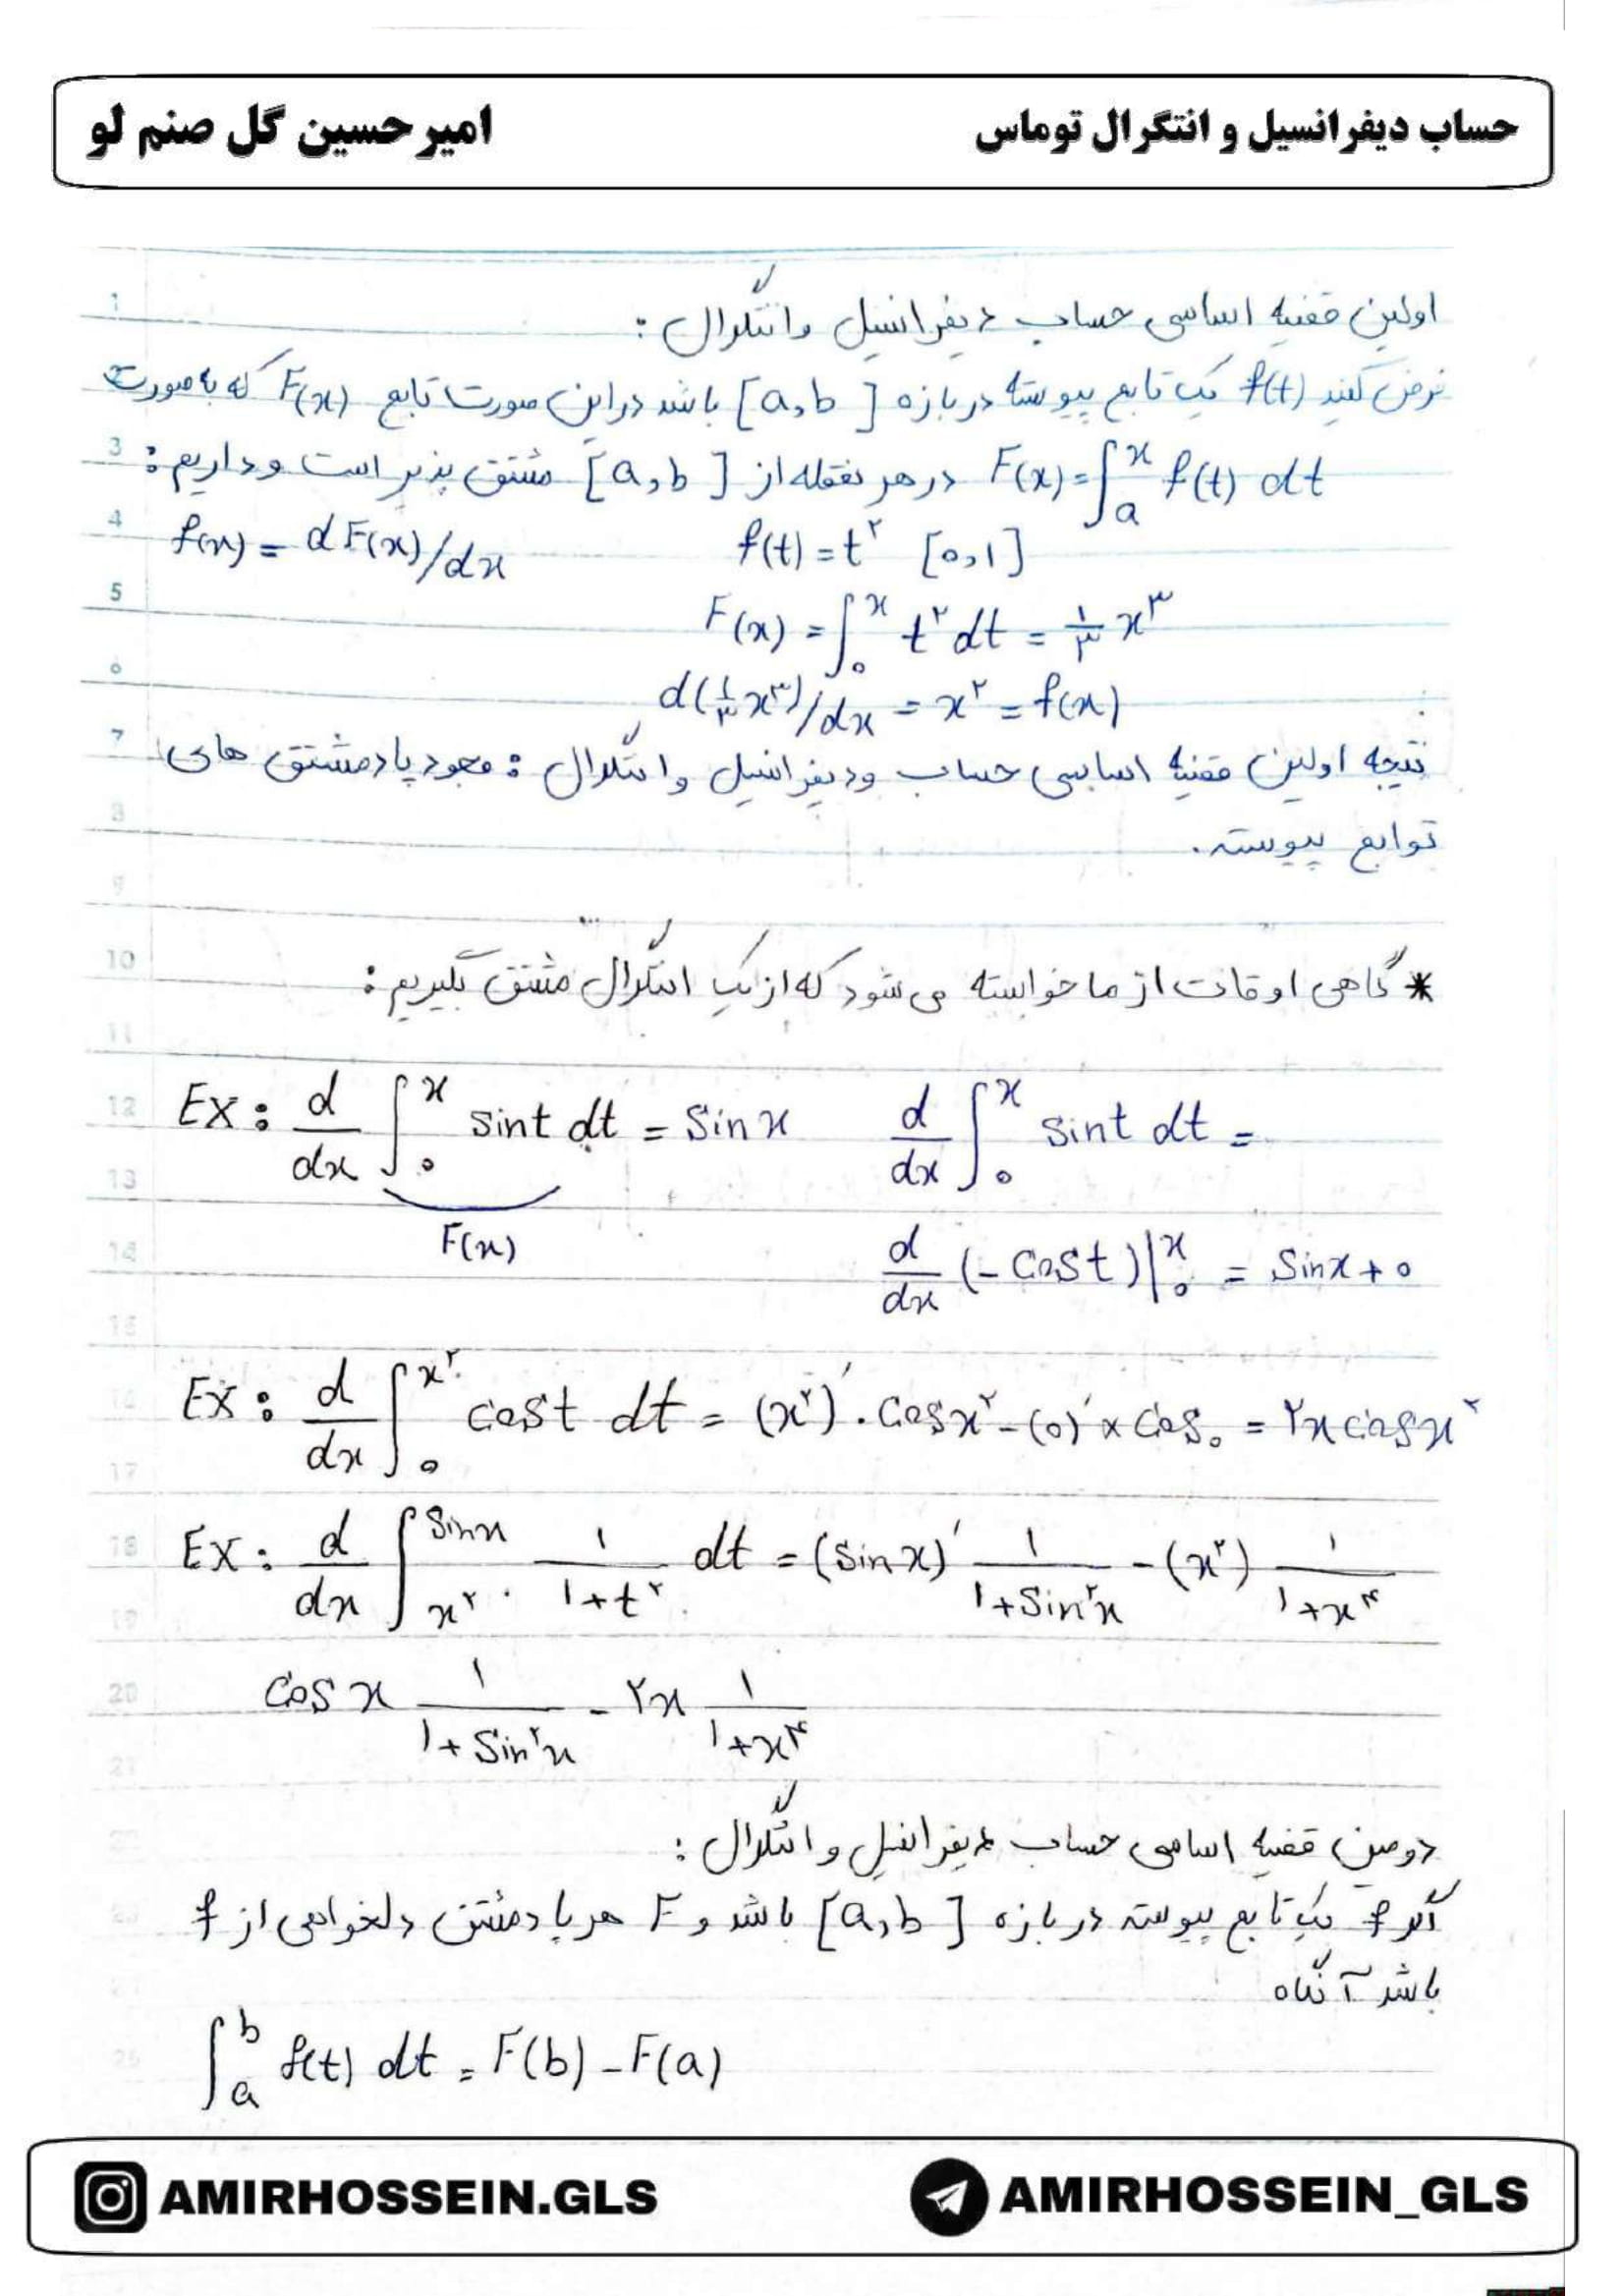 حساب دیفرانسیل و انتگرال توماس
امیرحسین گل صنم لو
اولین قضیه اساسی حساب دیفرانسیل و انتگرال :
فرض کنید f(t) یک تابع پیوسته در بازه [a,b] باشد در این صورت تابع F(x) که به صورت
F(x)=∫ₐˣ f(t) dt در هر نقطه از [a,b] مشتق پذیر است و داریم :
f(x) = dF(x)/dx    f(t)=t² [۰,۱]
F(x) = ∫₀ˣ t² dt = ۱/۳ x³
d(۱/۳ x³)/dx = x² = f(x)
نتیجه اولین قضیه اساسی حساب و دیفرانسیل و انتگرال : وجود پادمشتق های
توابع پیوسته.
* گاهی اوقات از ما خواسته می شود که از یک انتگرال مشتق بگیریم :
Ex : d/dx ∫₀ˣ sint dt = Sinx    d/dx ∫₀ˣ sint dt =
F(x)    d/dx (-Cost)|₀ˣ = Sinx + ۰
Ex : d/dx ∫₀^(x²) cost dt = (x²)' . Cosx² - (۰)' × Cos۰ = ۲x cosx²
Ex : d/dx ∫_(x²)^(Sinx) ۱/(۱+t²) dt = (Sinx)' ۱/(۱+Sin²x) - (x²) ۱/(۱+x⁴)
Cosx ۱/(۱+Sin²x) - ۲x ۱/(۱+x⁴)
دومین قضیه اساسی حساب دیفرانسیل و انتگرال :
اگر f یک تابع پیوسته در بازه [a,b] باشد و F هر پادمشتق دلخواهی از f
باشد آنگاه
∫ₐᵇ f(t) dt = F(b) - F(a)
AMIRHOSSEIN.GLS
AMIRHOSSEIN_GLS